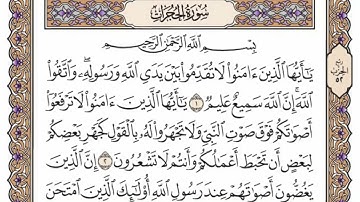 سُورَةُ الحُجُرَاتِ
بِسْمِ اللَّهِ الرَّحْمَٰنِ الرَّحِيمِ
يَٰٓأَيُّهَا الَّذِينَ ءَامَنُوا۟ لَا تُقَدِّمُوا۟ بَيْنَ يَدَيِ اللَّهِ وَرَسُولِهِۦ ۖ وَاتَّقُوا۟
اللَّهَ ۚ إِنَّ اللَّهَ سَمِيعٌ عَلِيمٌ ١ يَٰٓأَيُّهَا الَّذِينَ ءَامَنُوا۟ لَا تَرْفَعُوٓا۟
أَصْوَٰتَكُمْ فَوْقَ صَوْتِ النَّبِيِّ وَلَا تَجْهَرُوا۟ لَهُۥ بِالْقَوْلِ كَجَهْرِ بَعْضِكُمْ
لِبَعْضٍ أَن تَحْبَطَ أَعْمَٰلُكُمْ وَأَنتُمْ لَا تَشْعُرُونَ ٢ إِنَّ الَّذِينَ
يَغُضُّونَ أَصْوَٰتَهُمْ عِندَ رَسُولِ اللَّهِ أُو۟لَٰٓئِكَ الَّذِينَ امْتَحَنَ